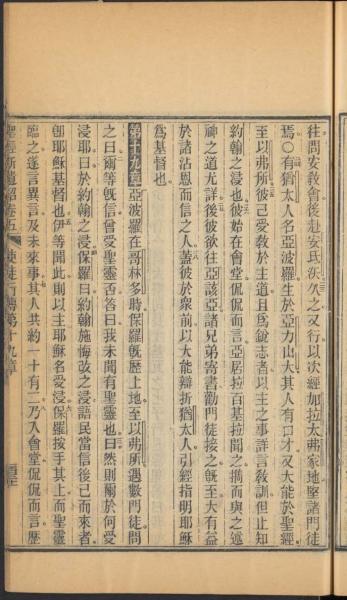 往問安敎會後赴安氐沃久之又行以次經加拉太弗家地堅諸門徒
焉○有猶太人名亞波羅生於亞力山大其人有口才又大能於聖經
至以弗所彼已受敎於主道且爲銳志者以主之事詳言敎訓但止知
約翰之浸也彼始在會堂侃侃而言亞居拉百基拉聞之攜而與之述
神之道尤詳後彼欲往亞該亞諸兄弟寄書勸門徒接之旣至大有益
於諸沾恩而信之人蓋彼於衆前以大能辯折猶太人引經指明耶穌
爲基督也
第十九章亞波羅在哥林多時保羅旣歷上地至以弗所遇數門徒問
之曰爾等旣信曾受聖靈否答曰我未聞有聖靈也曰然則關於何受
浸耶曰於約翰之浸保羅曰約翰施悔改之浸語民當信後己而來者
卽耶穌基督也伊等聞此則以主耶穌名受浸保羅按手其上而聖靈
臨之遂言異言及未來事其人共約一十有二乃入會堂侃侃而言歷
聖經新遺詔卷五 使徒行傳第十九章